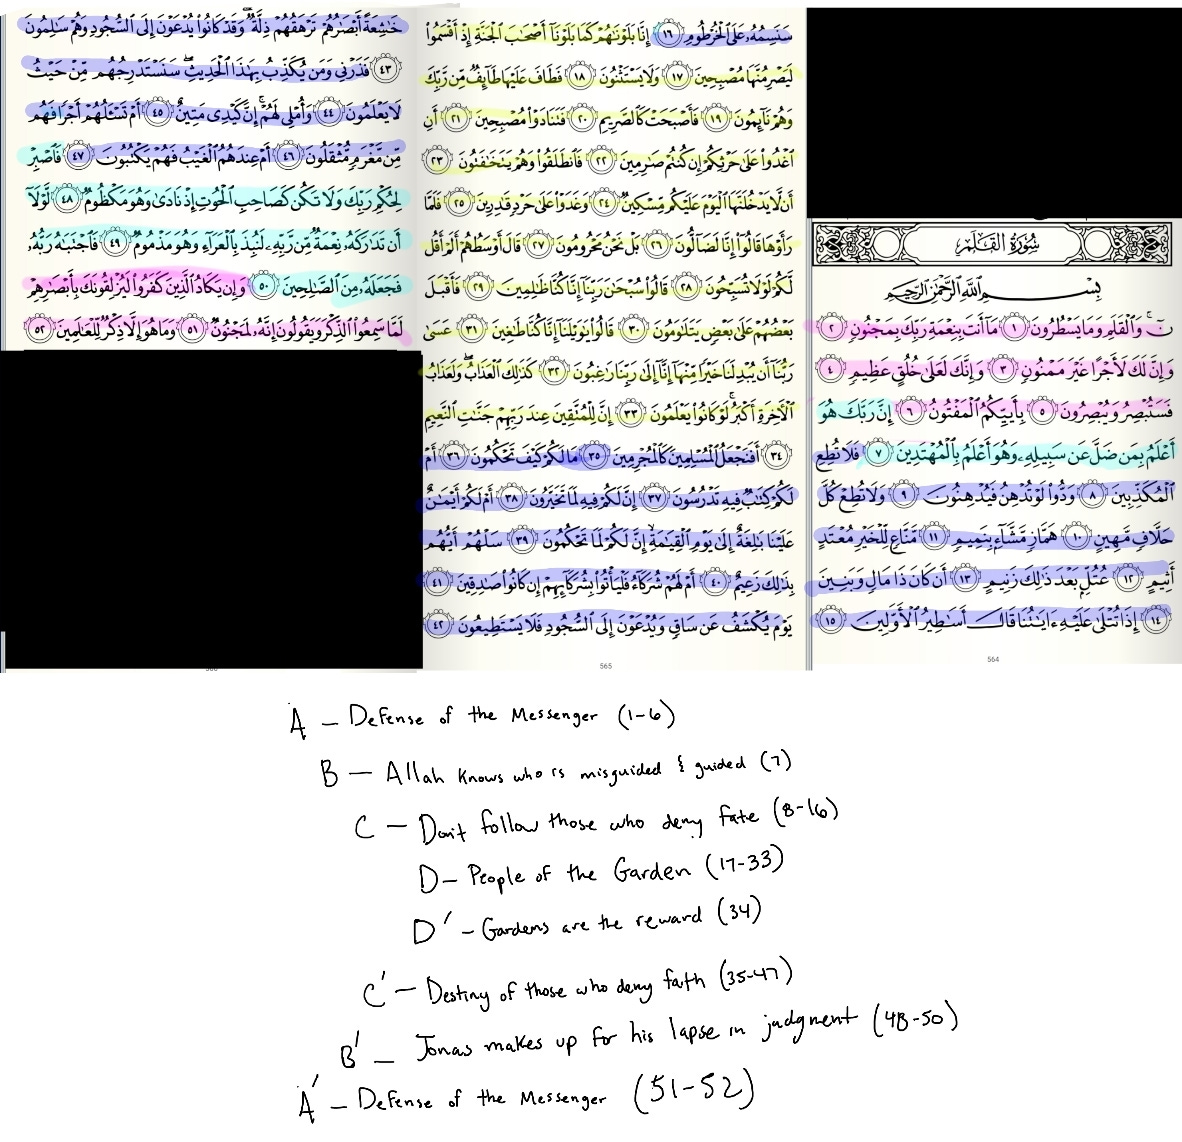 سُورَةُ القَلَمِ
بِسْمِ ٱللَّهِ ٱلرَّحْمَٰنِ ٱلرَّحِيمِ
نٓ ۚ وَٱلْقَلَمِ وَمَا يَسْطُرُونَ ١ مَآ أَنتَ بِنِعْمَةِ رَبِّكَ بِمَجْنُونٍ ٢
وَإِنَّ لَكَ لَأَجْرًا غَيْرَ مَمْنُونٍ ٣ وَإِنَّكَ لَعَلَىٰ خُلُقٍ عَظِيمٍ ٤
فَسَتُبْصِرُ وَيُبْصِرُونَ ٥ بِأَييِّكُمُ ٱلْمَفْتُونُ ٦ إِنَّ رَبَّكَ هُوَ
أَعْلَمُ بِمَن ضَلَّ عَن سَبِيلِهِۦ وَهُوَ أَعْلَمُ بِٱلْمُهْتَدِينَ ٧ فَلَا تُطِعِ
ٱلْمُكَذِّبِينَ ٨ وَدُّوا۟ لَوْ تُدْهِنُ فَيُدْهِنُونَ ٩ وَلَا تُطِعْ كُلَّ
حَلَّافٍ مَّهِينٍ ١٠ هَمَّازٍ مَّشَّآءٍۭ بِنَمِيمٍ ١١ مَّنَّاعٍ لِّلْخَيْرِ مُعْتَدٍ
أَثِيمٍ ١٢ عُتُلٍّۭ بَعْدَ ذَٰلِكَ زَنِيمٍ ١٣ أَن كَانَ ذَا مَالٍ وَبَنِينَ
١٤ إِذَا تُتْلَىٰ عَلَيْهِ ءَايَٰتُنَا قَالَ أَسَٰطِيرُ ٱلْأَوَّلِينَ ١٥
564
سَنَسِمُهُۥ عَلَى ٱلْخُرْطُومِ ١٦ إِنَّا بَلَوْنَٰهُمْ كَمَا بَلَوْنَآ أَصْحَٰبَ ٱلْجَنَّةِ إِذْ أَقْسَمُوا۟
لَيَصْرِمُنَّهَا مُصْبِحِينَ ١٧ وَلَا يَسْتَثْنُونَ ١٨ فَطَافَ عَلَيْهَا طَآئِفٌ مِّن رَّبِّكَ
وَهُمْ نَآئِمُونَ ١٩ فَأَصْبَحَتْ كَٱلصَّرِيمِ ٢٠ فَتَنَادَوْا۟ مُصْبِحِينَ ٢١ أَنِ
ٱغْدُوا۟ عَلَىٰ حَرْثِكُمْ إِن كُنتُمْ صَٰرِمِينَ ٢٢ فَٱنطَلَقُوا۟ وَهُمْ يَتَخَٰفَتُونَ ٢٣
أَن لَّا يَدْخُلَنَّهَا ٱلْيَوْمَ عَلَيْكُم مِّسْكِينٌ ٢٤ وَغَدَوْا۟ عَلَىٰ حَرْدٍ قَٰدِرِينَ ٢٥ فَلَمَّا
رَأَوْهَا قَالُوٓا۟ إِنَّا لَضَآلُّونَ ٢٦ بَلْ نَحْنُ مَحْرُومُونَ ٢٧ قَالَ أَوْسَطُهُمْ أَلَمْ أَقُل
لَّكُمْ لَوْلَا تُسَبِّحُونَ ٢٨ قَالُوا۟ سُبْحَٰنَ رَبِّنَآ إِنَّا كُنَّا ظَٰلِمِينَ ٢٩ فَأَقْبَلَ
بَعْضُهُمْ عَلَىٰ بَعْضٍ يَتَلَٰوَمُونَ ٣٠ قَالُوا۟ يَٰوَيْلَنَآ إِنَّا كُنَّا طَٰغِينَ ٣١ عَسَىٰ
رَبُّنَآ أَن يُبْدِلَنَا خَيْرًا مِّنْهَآ إِنَّآ إِلَىٰ رَبِّنَا رَٰغِبُونَ ٣٢ كَذَٰلِكَ ٱلْعَذَابُ ۖ وَلَعَذَابُ
ٱلْءَاخِرَةِ أَكْبَرُ ۚ لَوْ كَانُوا۟ يَعْلَمُونَ ٣٣ إِنَّ لِلْمُتَّقِينَ عِندَ رَبِّهِمْ جَنَّٰتِ ٱلنَّعِيمِ
٣٤ أَفَنَجْعَلُ ٱلْمُسْلِمِينَ كَٱلْمُجْرِمِينَ ٣٥ مَا لَكُمْ كَيْفَ تَحْكُمُونَ ٣٦ أَمْ
لَكُمْ كِتَٰبٌ فِيهِ تَدْرُسُونَ ٣٧ إِنَّ لَكُمْ فِيهِ لَمَا تَخَيَّرُونَ ٣٨ أَمْ لَكُمْ أَيْمَٰنٌ
عَلَيْنَا بَٰلِغَةٌ إِلَىٰ يَوْمِ ٱلْقِيَٰمَةِ ۙ إِنَّ لَكُمْ لَمَا تَحْكُمُونَ ٣٩ سَلْهُمْ أَيُّهُم
بِذَٰلِكَ زَعِيمٌ ٤٠ أَمْ لَهُمْ شُرَكَآءُ فَلْيَأْتُوا۟ بِشُرَكَآئِهِمْ إِن كَانُوا۟ صَٰدِقِينَ ٤١
يَوْمَ يُكْشَفُ عَن سَاقٍ وَيُدْعَوْنَ إِلَى ٱلسُّجُودِ فَلَا يَسْتَطِيعُونَ ٤٢
565
خَٰشِعَةً أَبْصَٰرُهُمْ تَرْهَقُهُمْ ذِلَّةٌ ۖ وَقَدْ كَانُوا۟ يُدْعَوْنَ إِلَى ٱلسُّجُودِ وَهُمْ سَٰلِمُونَ
٤٣ فَذَرْنِى وَمَن يُكَذِّبُ بِهَٰذَا ٱلْحَدِيثِ ۖ سَنَسْتَدْرِجُهُم مِّنْ حَيْثُ
لَا يَعْلَمُونَ ٤٤ وَأُمْلِى لَهُمْ ۚ إِنَّ كَيْدِى مَتِينٌ ٤٥ أَمْ تَسْـَٔلُهُمْ أَجْرًا فَهُم
مِّن مَّغْرَمٍ مُّثْقَلُونَ ٤٦ أَمْ عِندَهُمُ ٱلْغَيْبُ فَهُمْ يَكْتُبُونَ ٤٧ فَٱصْبِرْ
لِحُكْمِ رَبِّكَ وَلَا تَكُن كَصَاحِبِ ٱلْحُوتِ إِذْ نَادَىٰ وَهُوَ مَكْظُومٌ ٤٨ لَّوْلَآ
أَن تَدَٰرَكَهُۥ نِعْمَةٌ مِّن رَّبِّهِۦ لَنُبِذَ بِٱلْعَرَآءِ وَهُوَ مَذْمُومٌ ٤٩ فَٱجْتَبَٰهُ رَبُّهُۥ
فَجَعَلَهُۥ مِنَ ٱلصَّٰلِحِينَ ٥٠ وَإِن يَكَادُ ٱلَّذِينَ كَفَرُوا۟ لَيُزْلِقُونَكَ بِأَبْصَٰرِهِمْ
لَمَّا سَمِعُوا۟ ٱلذِّكْرَ وَيَقُولُونَ إِنَّهُۥ لَمَجْنُونٌ ٥١ وَمَا هُوَ إِلَّا ذِكْرٌ لِّلْعَٰلَمِينَ ٥٢
A – Defense of the Messenger (1-6)
B – Allah knows who is misguided & guided (7)
C – Don't follow those who deny fate (8-16)
D – People of the Garden (17-33)
D' – Gardens are the reward (34)
C' – Destiny of those who deny faith (35-47)
B' – Jonas makes up for his lapse in judgment (48-50)
A' – Defense of the Messenger (51-52)